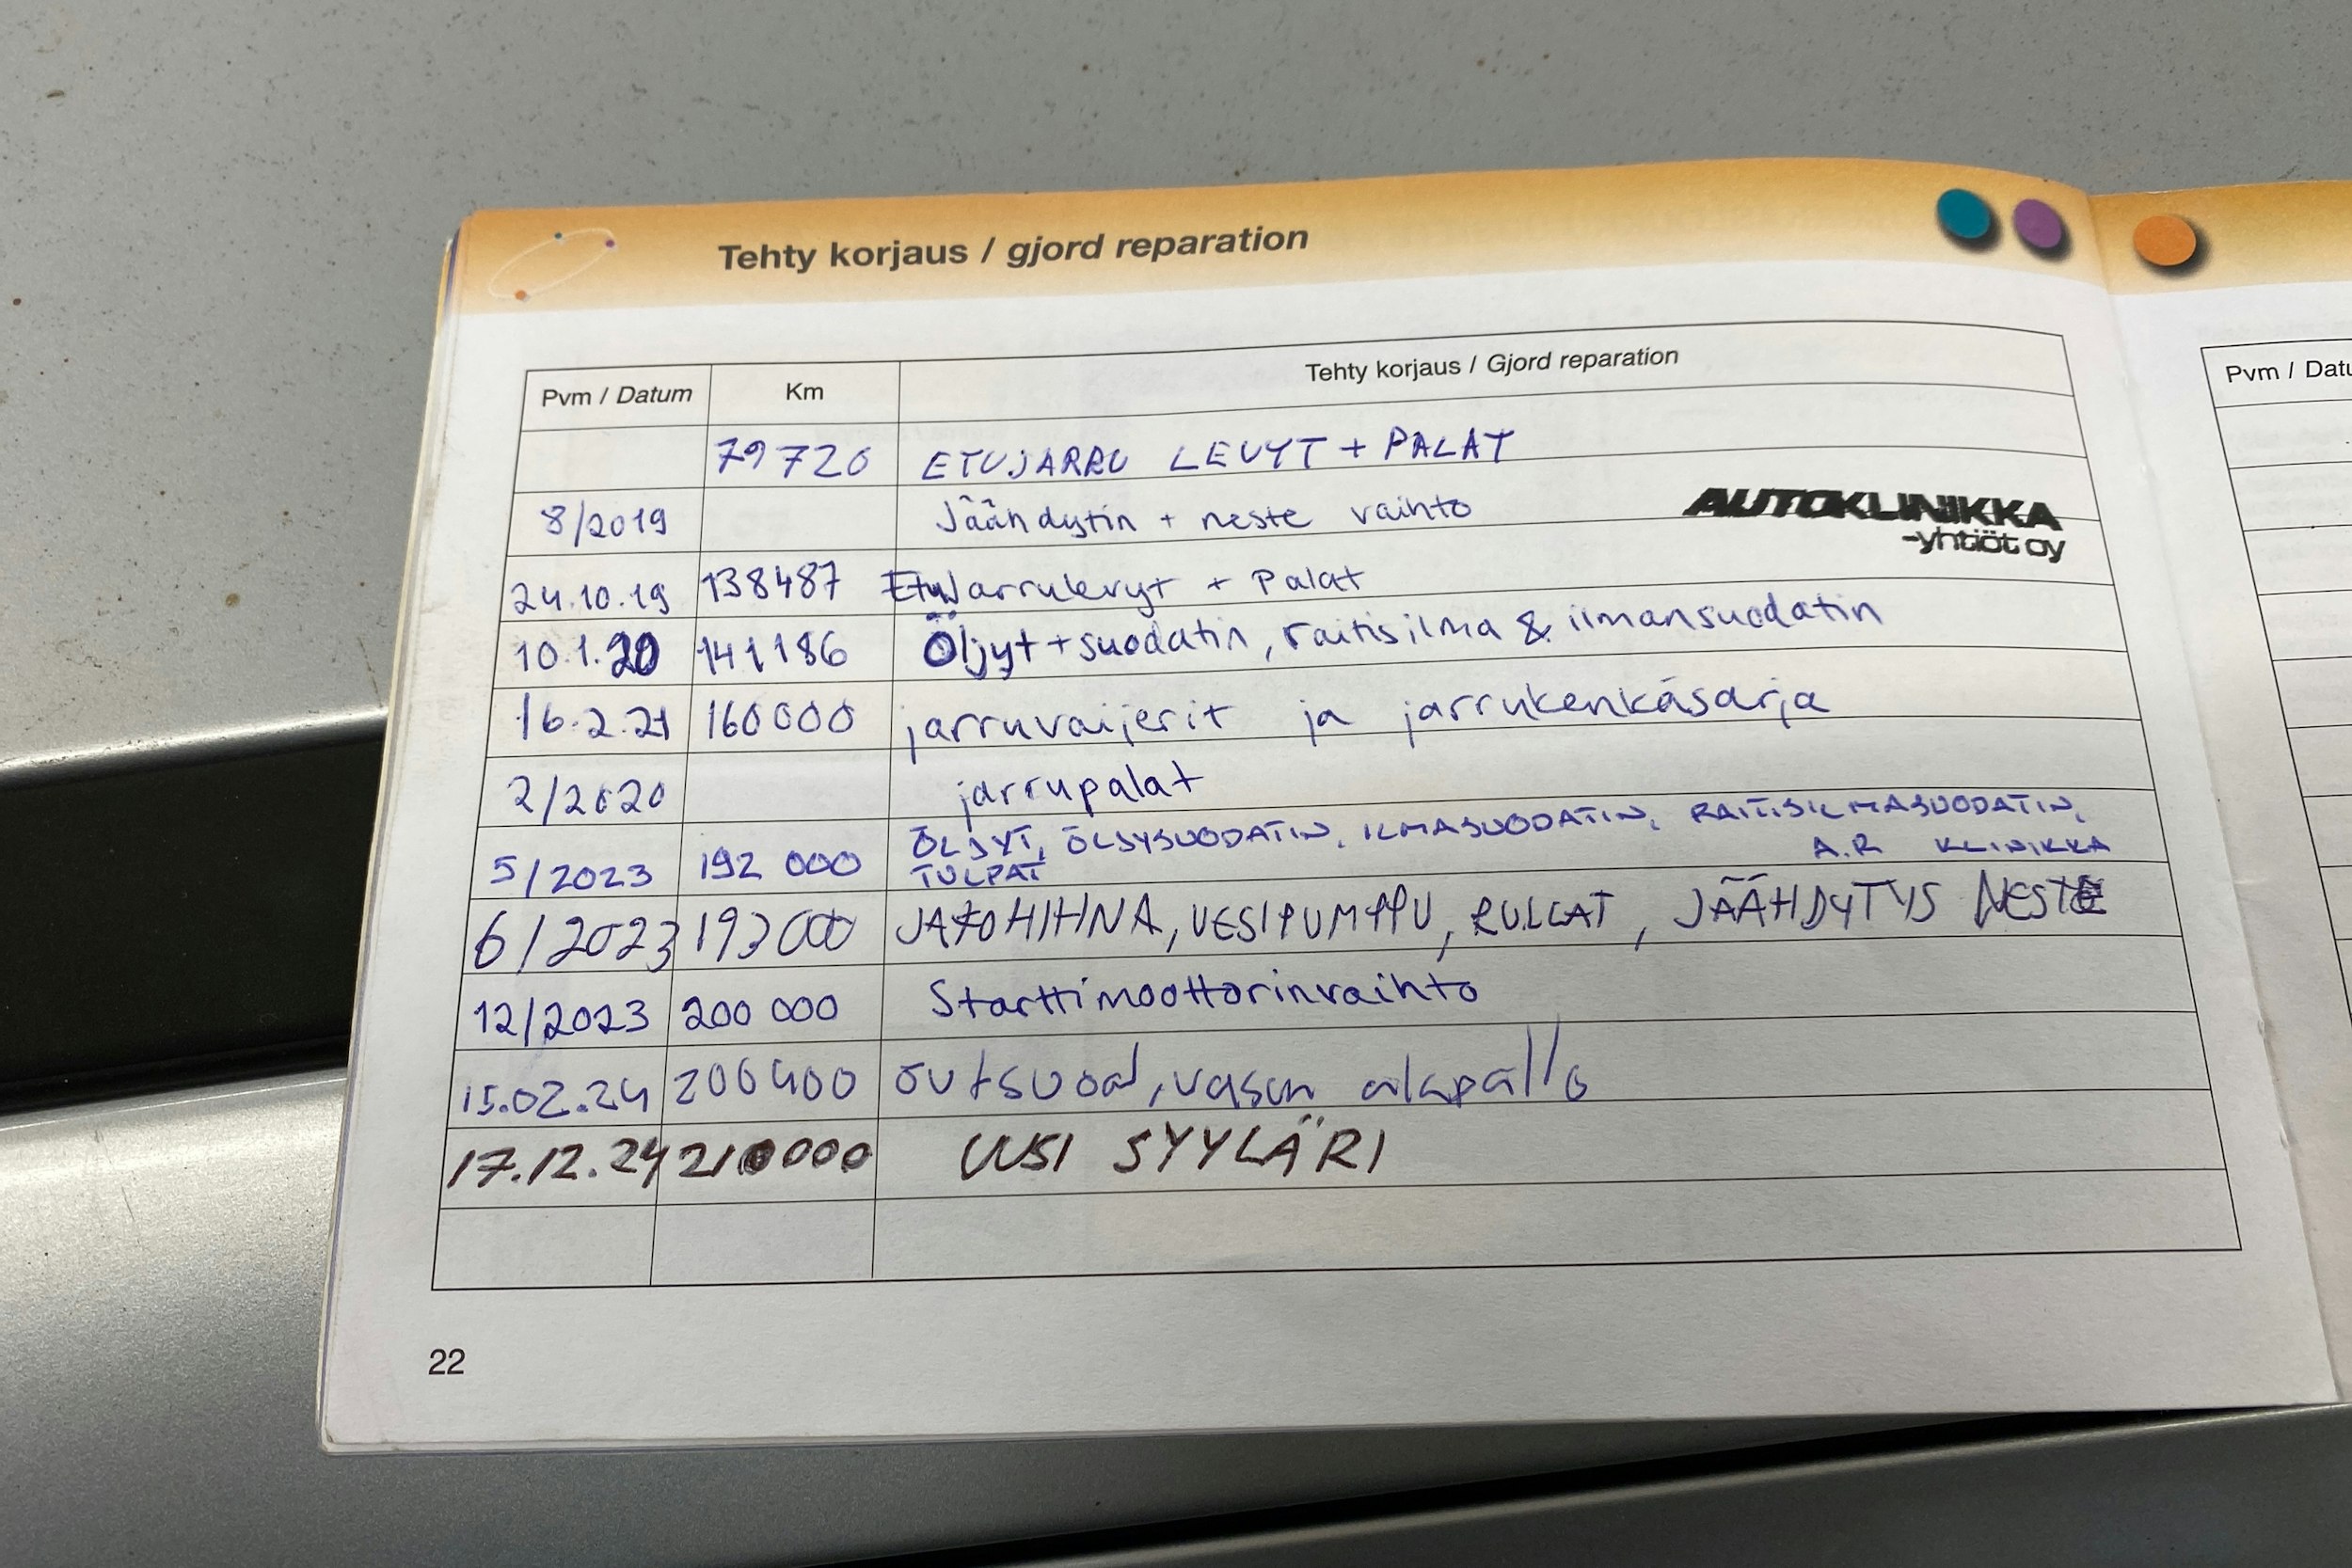 Tehty korjaus / gjord reparation
Pvm / Datum Km Tehty korjaus / Gjord reparation
79720 ETUJARRU LEVYT + PALAT
8/2019 Jäähdytin + neste vaihto
AUTOKLINIKKA
-yhtiöt oy
24.10.19 138487 EtuJarrulevyt + Palat
10.1.20 141186 Öljyt + suodatin, raitisilma & ilmansuodatin
16.2.21 160000 jarruvaijerit ja jarrukenkäsarja
2/2020 jarrupalat
5/2023 192 000 ÖLJYT, ÖLJYSUODATIN, ILMASUODATIN, RAITISILMASUODATIN,
TULPAT A.R KLINIKKA
6/2023 193000 JAKOHIHNA, VESIPUMPPU, RULLAT, JÄÄHDYTYS NESTE
12/2023 200 000 Starttimoottorinvaihto
15.02.24 200400 vasen alapallo
17.12.24 210000 UUSI SYYLÄRI
22
Pvm / Datu